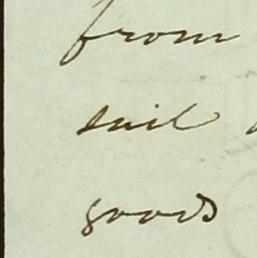 from
sail
goods